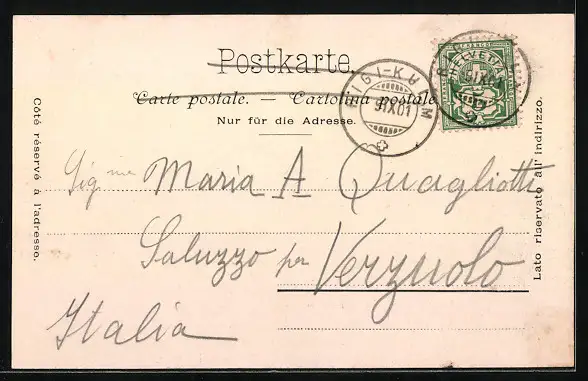 Postkarte.
Carte postale. — Cartolina postale
Nur für die Adresse.
RIGI-KULM
9.IX.01
HELVETIA
Côté réservé à l'adresse.
Lato riservato all'indirizzo.
Sigina Maria A Quagliotti
Saluzzo per Verzuolo
Italia